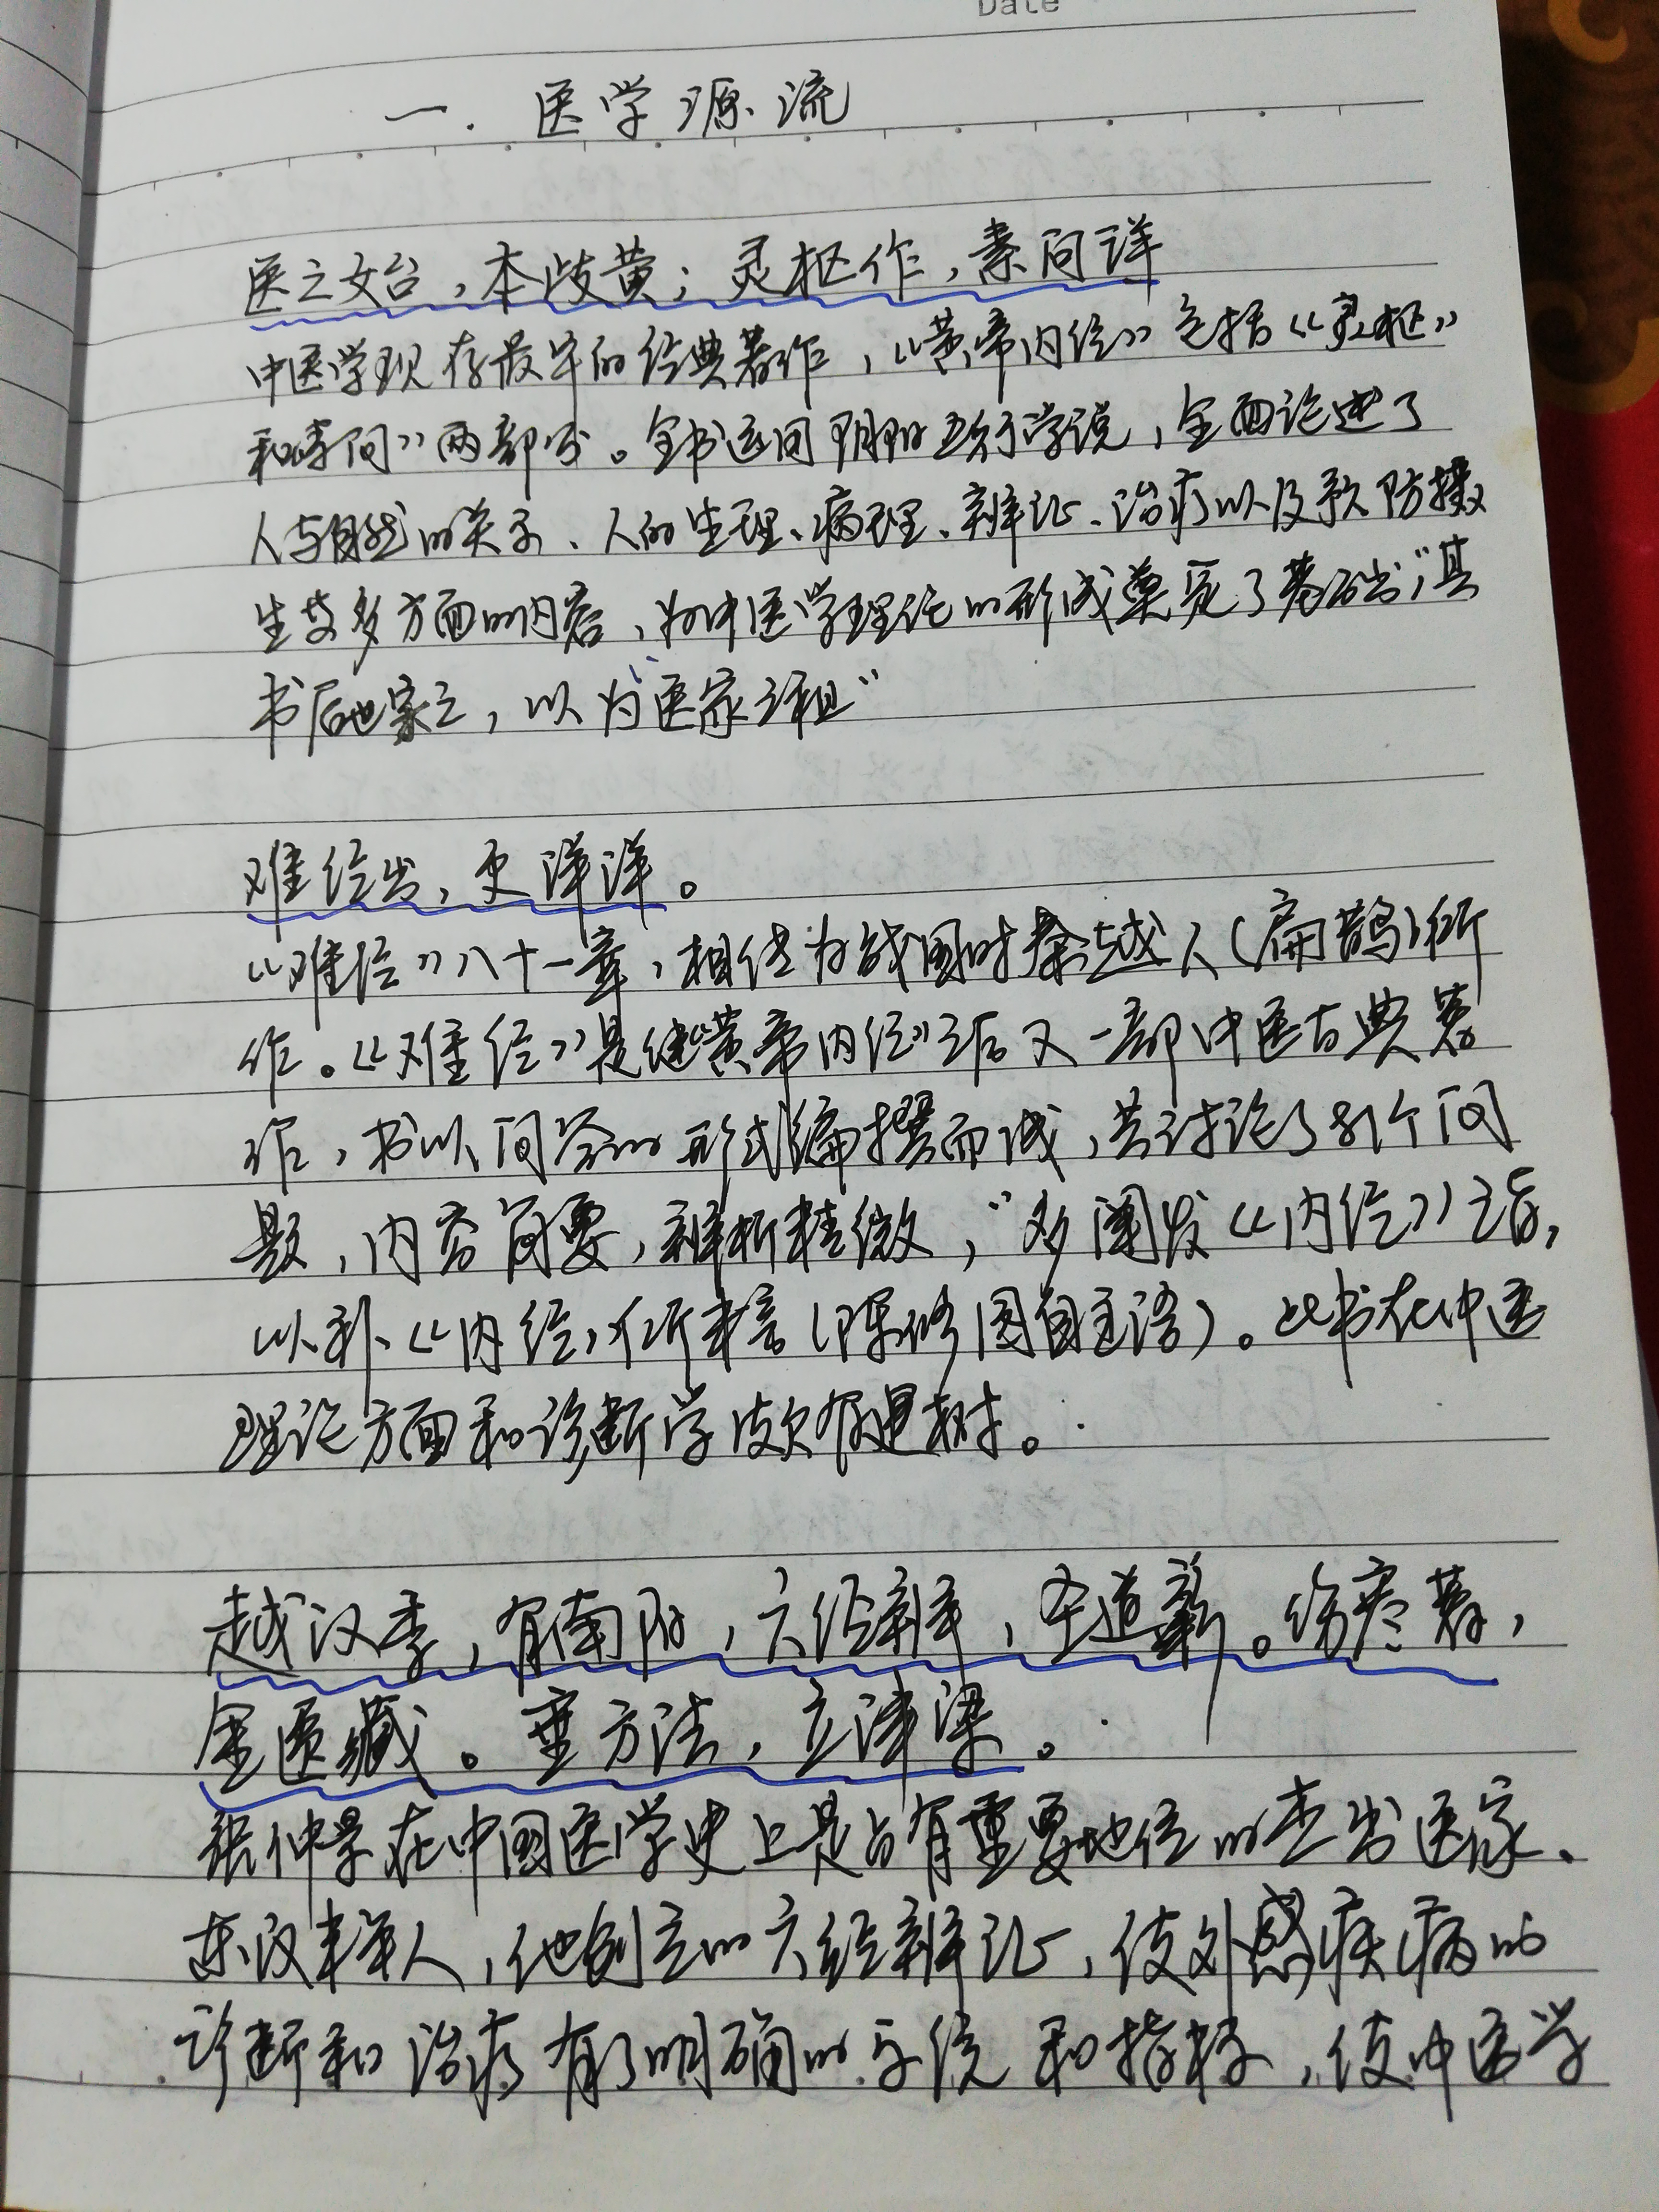 Date
一. 医学源流
医之始，本岐黄；灵枢作，素问详
中医学现存最早的经典著作，《黄帝内经》包括《灵枢》
和素问》两部分。全书运同阴阳五行学说，全面论述了
人与自然的关系、人的生理、病理、辨证、治疗以及预防摄
生等多方面的内容，为中医学理论的形成奠定了基础"其
书后世宗之，以为"医家之祖"
难经出，更洋洋。
《难经》八十一章，相传为战国时秦越人（扁鹊）所
作。《难经》是继《黄帝内经》之后又一部中医古典著
作，书以问答的形式编撰而成，共讨论了81个问
题，内容简要，辨析精微，"多阐发《内经》之旨，
以补《内经》所未言（陈修园自注语）。此书在中医
理论方面和诊断学颇有建树。
越汉季，有南阳，六经辨，圣道彰。伤寒著，
金匮藏。垂方法，立津梁。
张仲景在中国医学史上是占有重要地位的杰出医家、
东汉末年人，他创立的六经辨证，使外感疾病的
诊断和治疗有了明确的系统和指标，使中医学